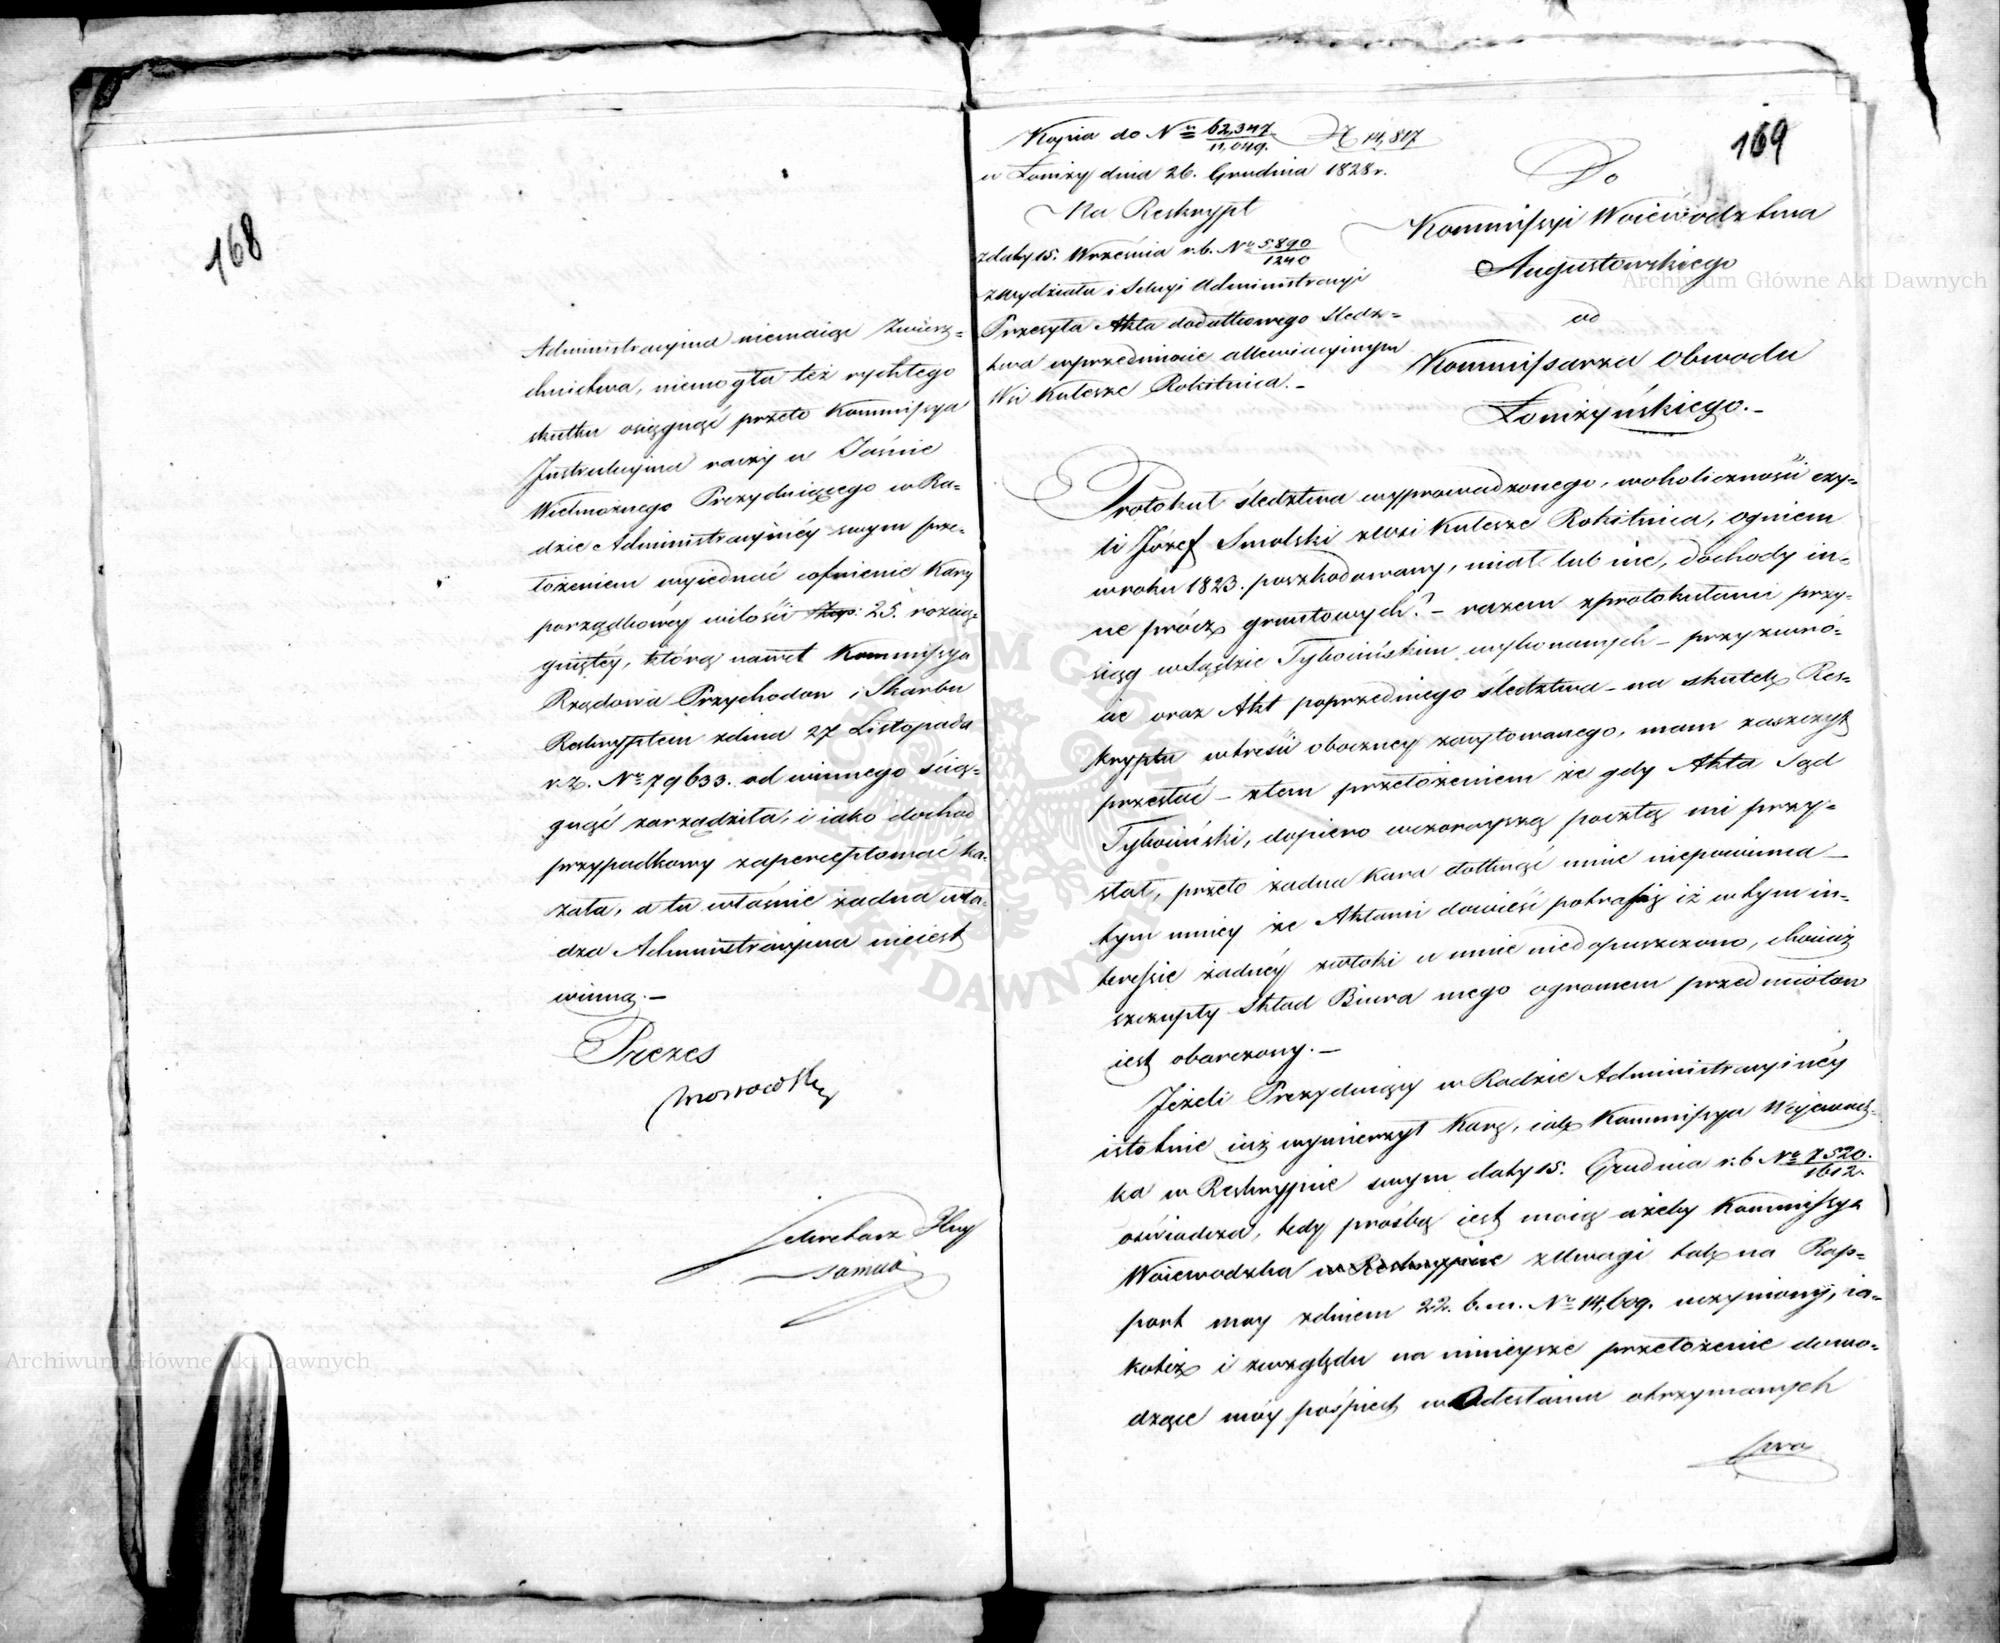 168
Administracyina niemaiąc Zwierz=
chnictwa, niemogła też rychłego
skutku osięgnąć przeto Kommissya
Instrukcyina raczy u Jaśnie
Wielmożnego Prezyduiącego w Ra=
dzie Administracyinéy swym prze=
łożeniem wyiednać cofnienie Kary
porządkowéy wilości 25. rozcią=
gniętéy, którą nawet Kommissya
Rządowa Przychodow i Skarbu
Reskryptem zdnia 27 Listopada
r.z. No 79633. od winnego ścią=
gnąć zarządziła, i iako dochod
przypadkowy zapercepłować ka=
zała, a tu właśnie żadna wła=
dza Administracyina nieiest
winną.—
Prezes
Sekretarz Jlny
169
Kopia do No 62,347/11,049. N 14,817
w Łomży dnia 26. Grudnia 1828 r.
Na Reskrypt
zdaty 15. Września r.b. No 5890/1240
zWydziału i Sekcyi Administracyi
Przesyła Akta dodatkowego Sledz=
twa wprzedmiocie allewiacyinym
Wsi Kulesze Rokitnica.—
Do
Kommissyi Woiewodztwa
Augustowskiego
od
Kommissarza Obwodu
Łomżyńskiego.—
Protokuł śledztwa wyprowadzonego, wokoliczności czy=
li Józef Smolski zWsi Kulesze Rokitnica, ogniem
wroku 1823. poszkodowany, miał lub nie, dochody in=
ne prócz gruntowych?— razem zprotokułami przy=
siąg wSądzie Tykocińskim wykonanych— przyzwró=
ce oraz Akt poprzedniego śledztwa— na skutek Res=
kryptu wtreści oboczney zacytowanego, mam zaszczyt
przesłać— ztem przełożeniem że gdy Akta Sąd
Tykociński, dopiero wczorayszą pocztą mi przy=
słał, przeto żadna kara dotknąć mnie niepowinna—
tym mniey że Aktami dowieść potrafię iż wtym in=
teressie żadnéy zwłoki u mnie niedopuszczono, chociaż
szczupły Skład Biura mego ogromem przedmiotow
iest obarczony.—
Jeżeli Prezyduiący w Radzie Administracyinéy
istotnie iuż wymierzył Karę, iak Kommissya Wojewodz=
ka w Reskrypcie swym daty 15. Grudnia r.b No 7520./1612.
oświadcza, tedy prośbą iest moią ażeby Kommissya
Woiewodzka w Reskrypcie zUwagi tak na Rap=
port moy zdniem 22. b.m. No 14,609. uczyniony, ia=
kotéż i zwzględu na ninieysze przełożenie dowo=
dzące móy pośpiech wOdesłaniu otrzymanych